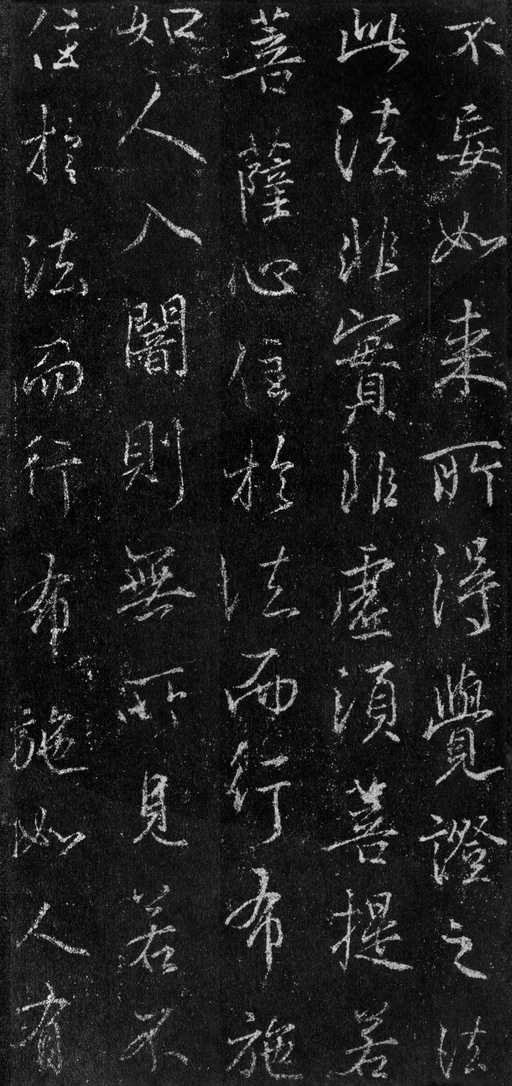 不妄如来所得覺證之法
此法非實非虛須菩提若
菩薩心住於法而行布施
如人入闇則無所見若不
住於法而行布施如人有